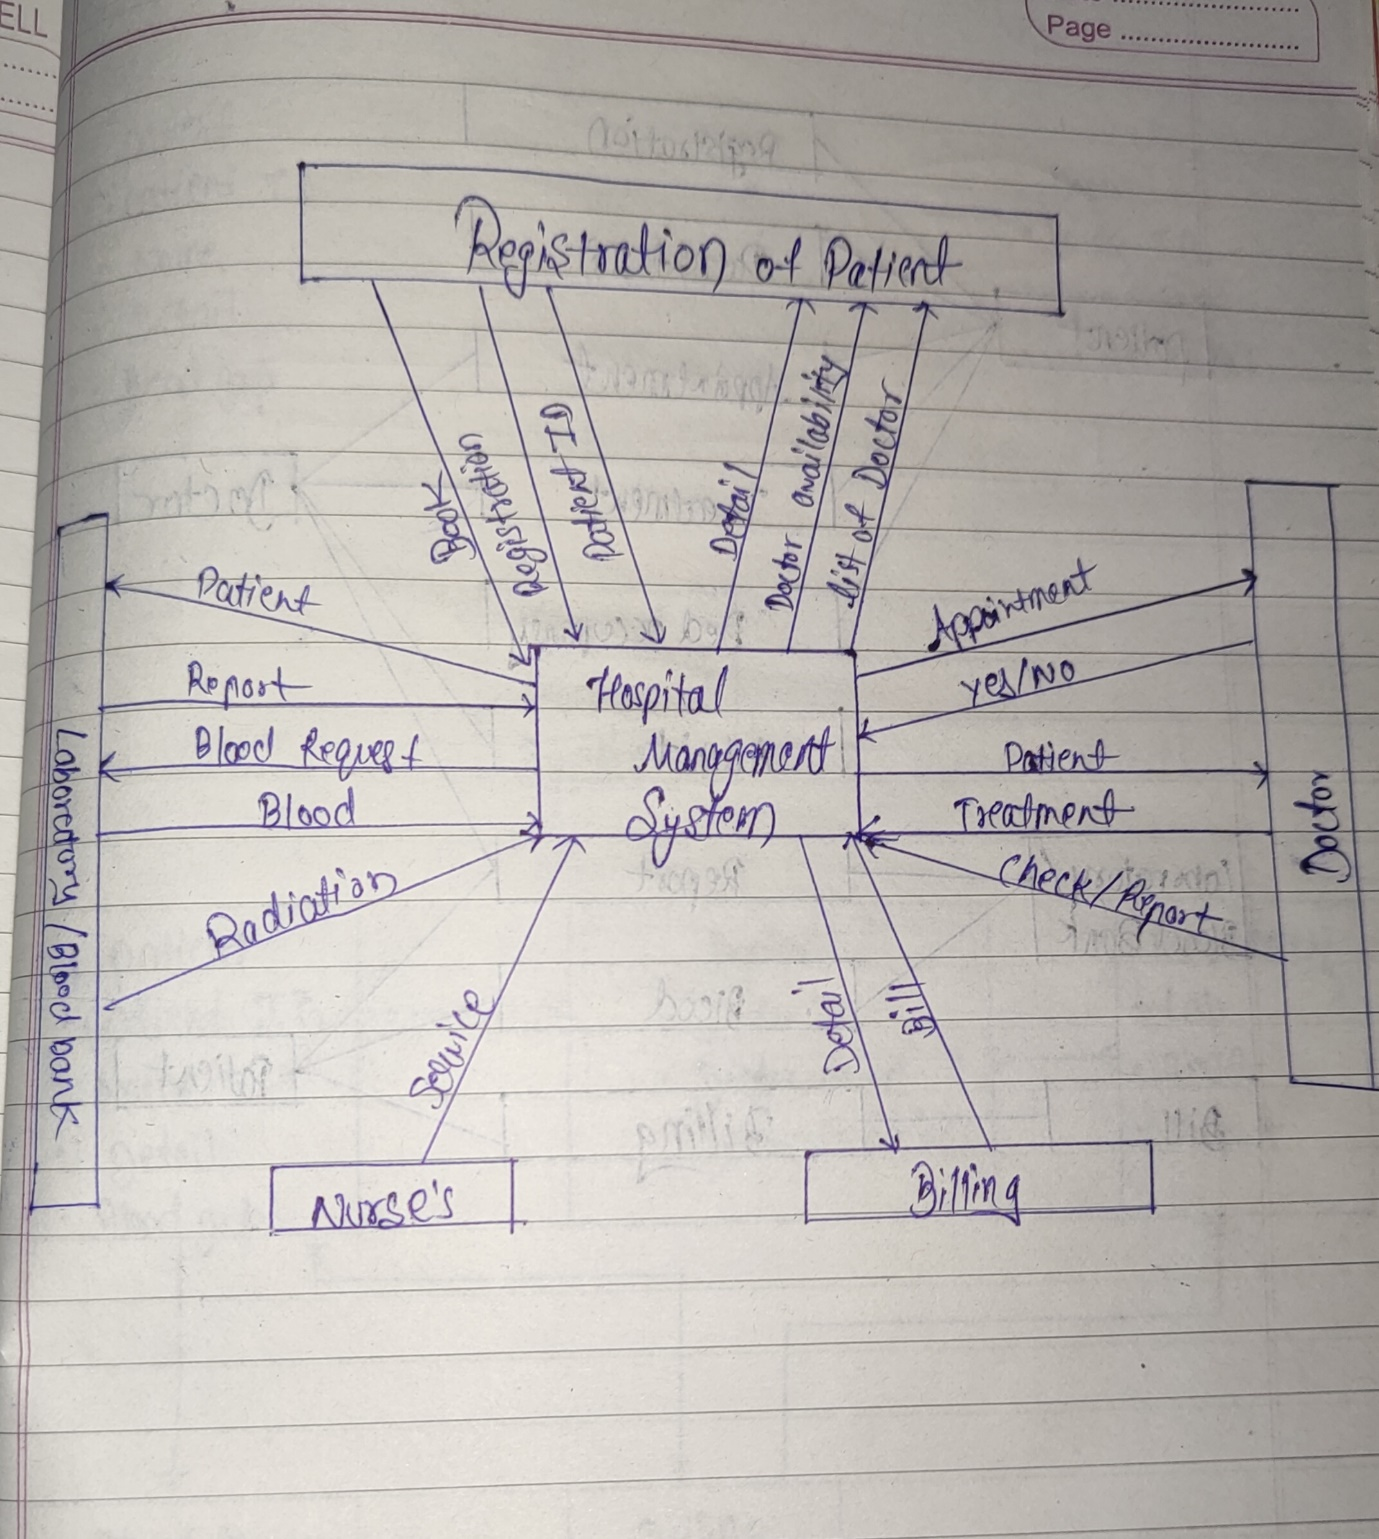 ELL
Page
Registration of Patient
Book
Registration
Patient ID
Detail
Doctor availability
List of Doctor
Patient
Report
Blood Request
Blood
Radiation
Laboratory / Blood bank
Hospital
Management
System
Appointment
yes/No
Patient
Treatment
Check/Report
Doctor
Service
Detail
Bill
Nurse's
Billing